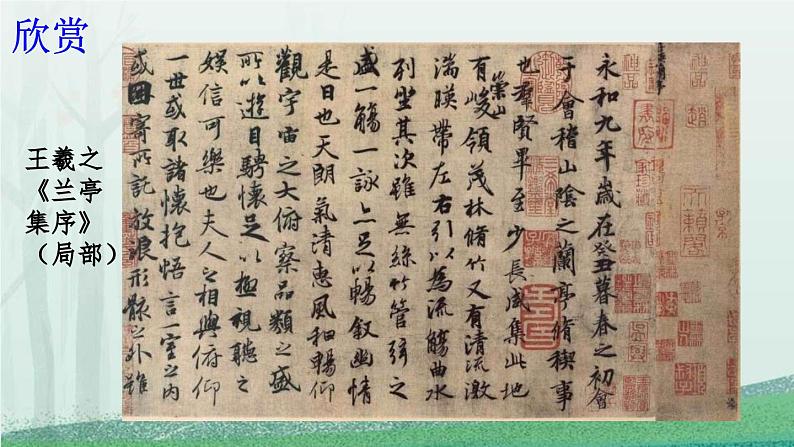 欣赏
王羲之
《兰亭
集序》
（局部）
永和九年歲在癸丑暮春之初會
于會稽山陰之蘭亭脩稧事
也羣賢畢至少長咸集此地
有崇山峻領茂林脩竹又有清流激
湍暎帶左右引以為流觴曲水
列坐其次雖無絲竹管弦之
盛一觴一詠亦足以暢敘幽情
是日也天朗氣清惠風和暢仰
觀宇宙之大俯察品類之盛
所以遊目騁懷足以極視聽之
娛信可樂也夫人之相與俯仰
一世或取諸懷抱悟言一室之內
或因寄所託放浪形骸之外雖